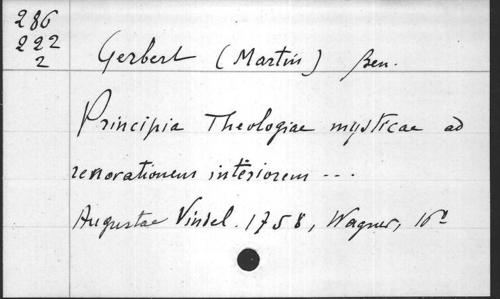 286
222
2
Gerbert (Martin) sen.
Principia Theologiae mysticae ad
renorationem interiorem ---
Augustae Vindel. 1758, Wagner, 16º